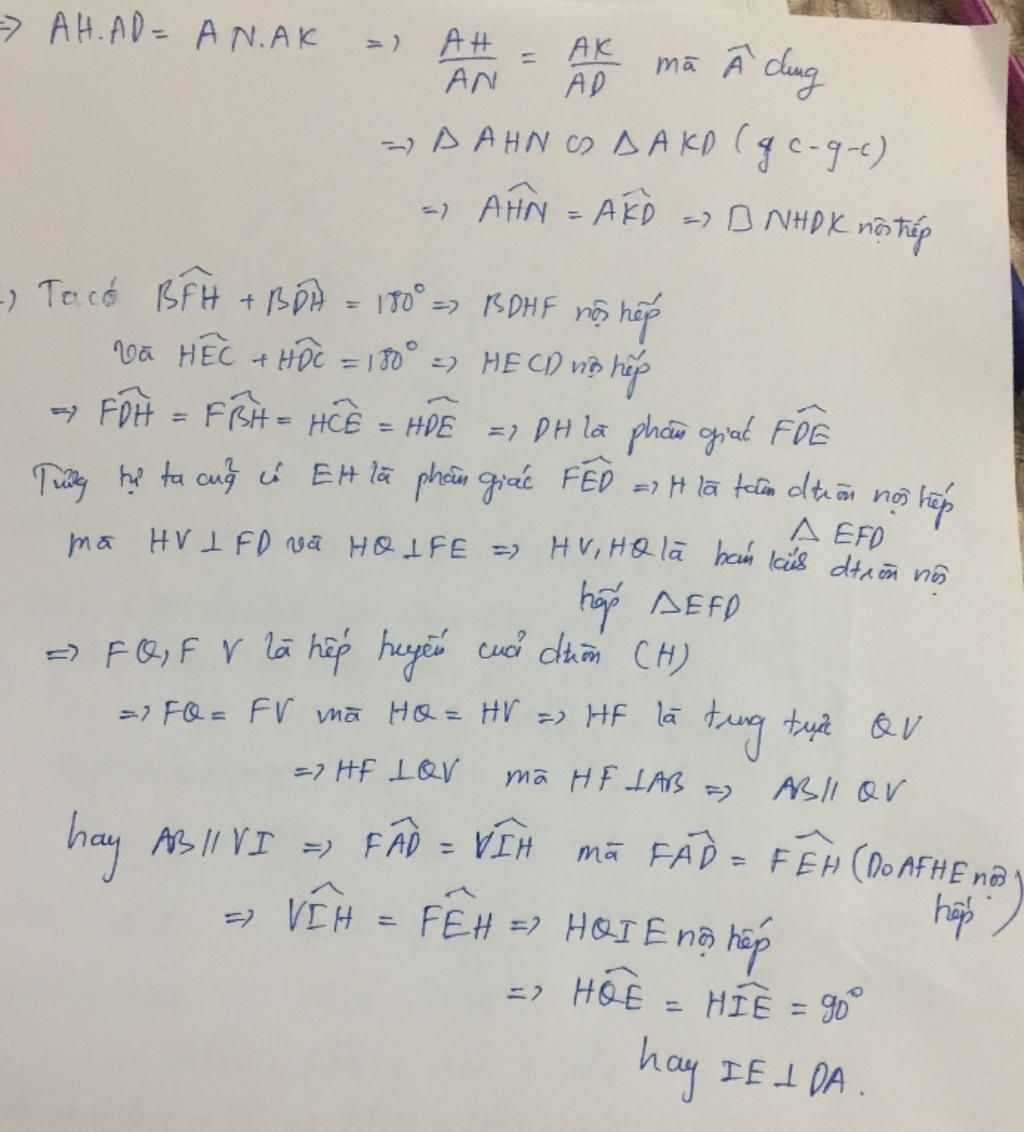 => AH.AD = AN.AK => AH/AN = AK/AD mà Â chung
=> Δ AHN ∽ Δ AKD ( c-g-c)
=> AĤN = AK̂D => □ NHDK nội tiếp
) Ta có BF̂H + BD̂H = 180° => BDHF nội tiếp
và HÊC + HD̂C = 180° => HECD nội tiếp
=> FD̂H = FB̂H = HĈE = HD̂E => DH là phân giác FD̂E
Tương tự ta cũng có EH là phân giác FÊD => H là tâm đtròn nội tiếp
Δ EFD
mà HV ⊥ FD và HQ ⊥ FE => HV, HQ là bán kính đtròn nội
tiếp Δ EFD
=> FQ, FV là tiếp tuyến của đtròn (H)
=> FQ = FV mà HQ = HV => HF là trung trực QV
=> HF ⊥ QV mà HF ⊥ AB => AB // QV
hay AB // VI => FÂD = VÎH mà FÂD = FÊH (Do AFHE nội
tiếp)
=> VÎH = FÊH => HQIE nội tiếp
=> HQ̂E = HÎE = 90°
hay IE ⊥ DA.